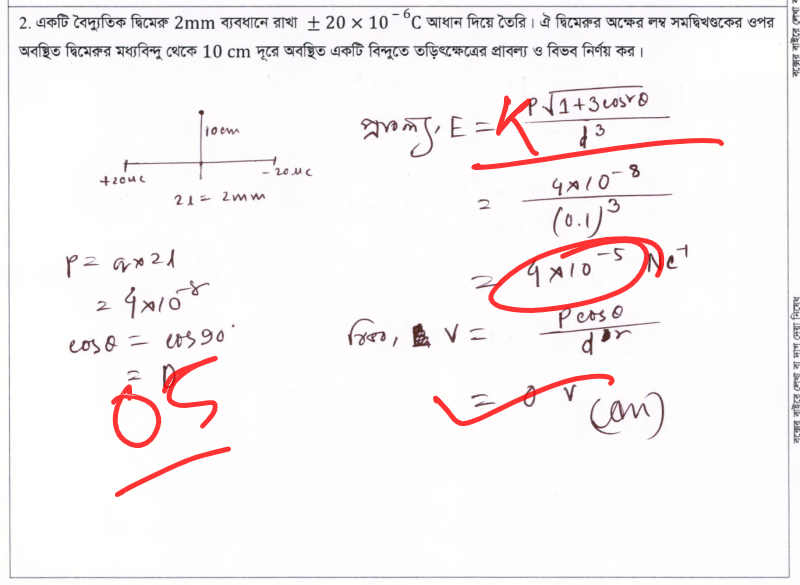 2. একটি বৈদ্যুতিক দ্বিমেরু 2mm ব্যবধানে রাখা ± 20 × 10⁻⁶C আধান দিয়ে তৈরি। ঐ দ্বিমেরুর অক্ষের লম্ব সমদ্বিখণ্ডকের ওপর
অবস্থিত দ্বিমেরুর মধ্যবিন্দু থেকে 10 cm দূরে অবস্থিত একটি বিন্দুতে তড়িৎক্ষেত্রের প্রাবল্য ও বিভব নির্ণয় কর।
10cm
+20μc
-20μc
2l = 2mm
P = q×2l
= 4×10⁻⁸
cosθ = cos90°
= 0
05
প্রাবল্য, E = K P√1+3cos²θ / d³
= 4×10⁻⁸ / (0.1)³
= 4×10⁻⁵ Nc⁻¹
বিভব, V = Pcosθ / d²
= 0 V (Ans)